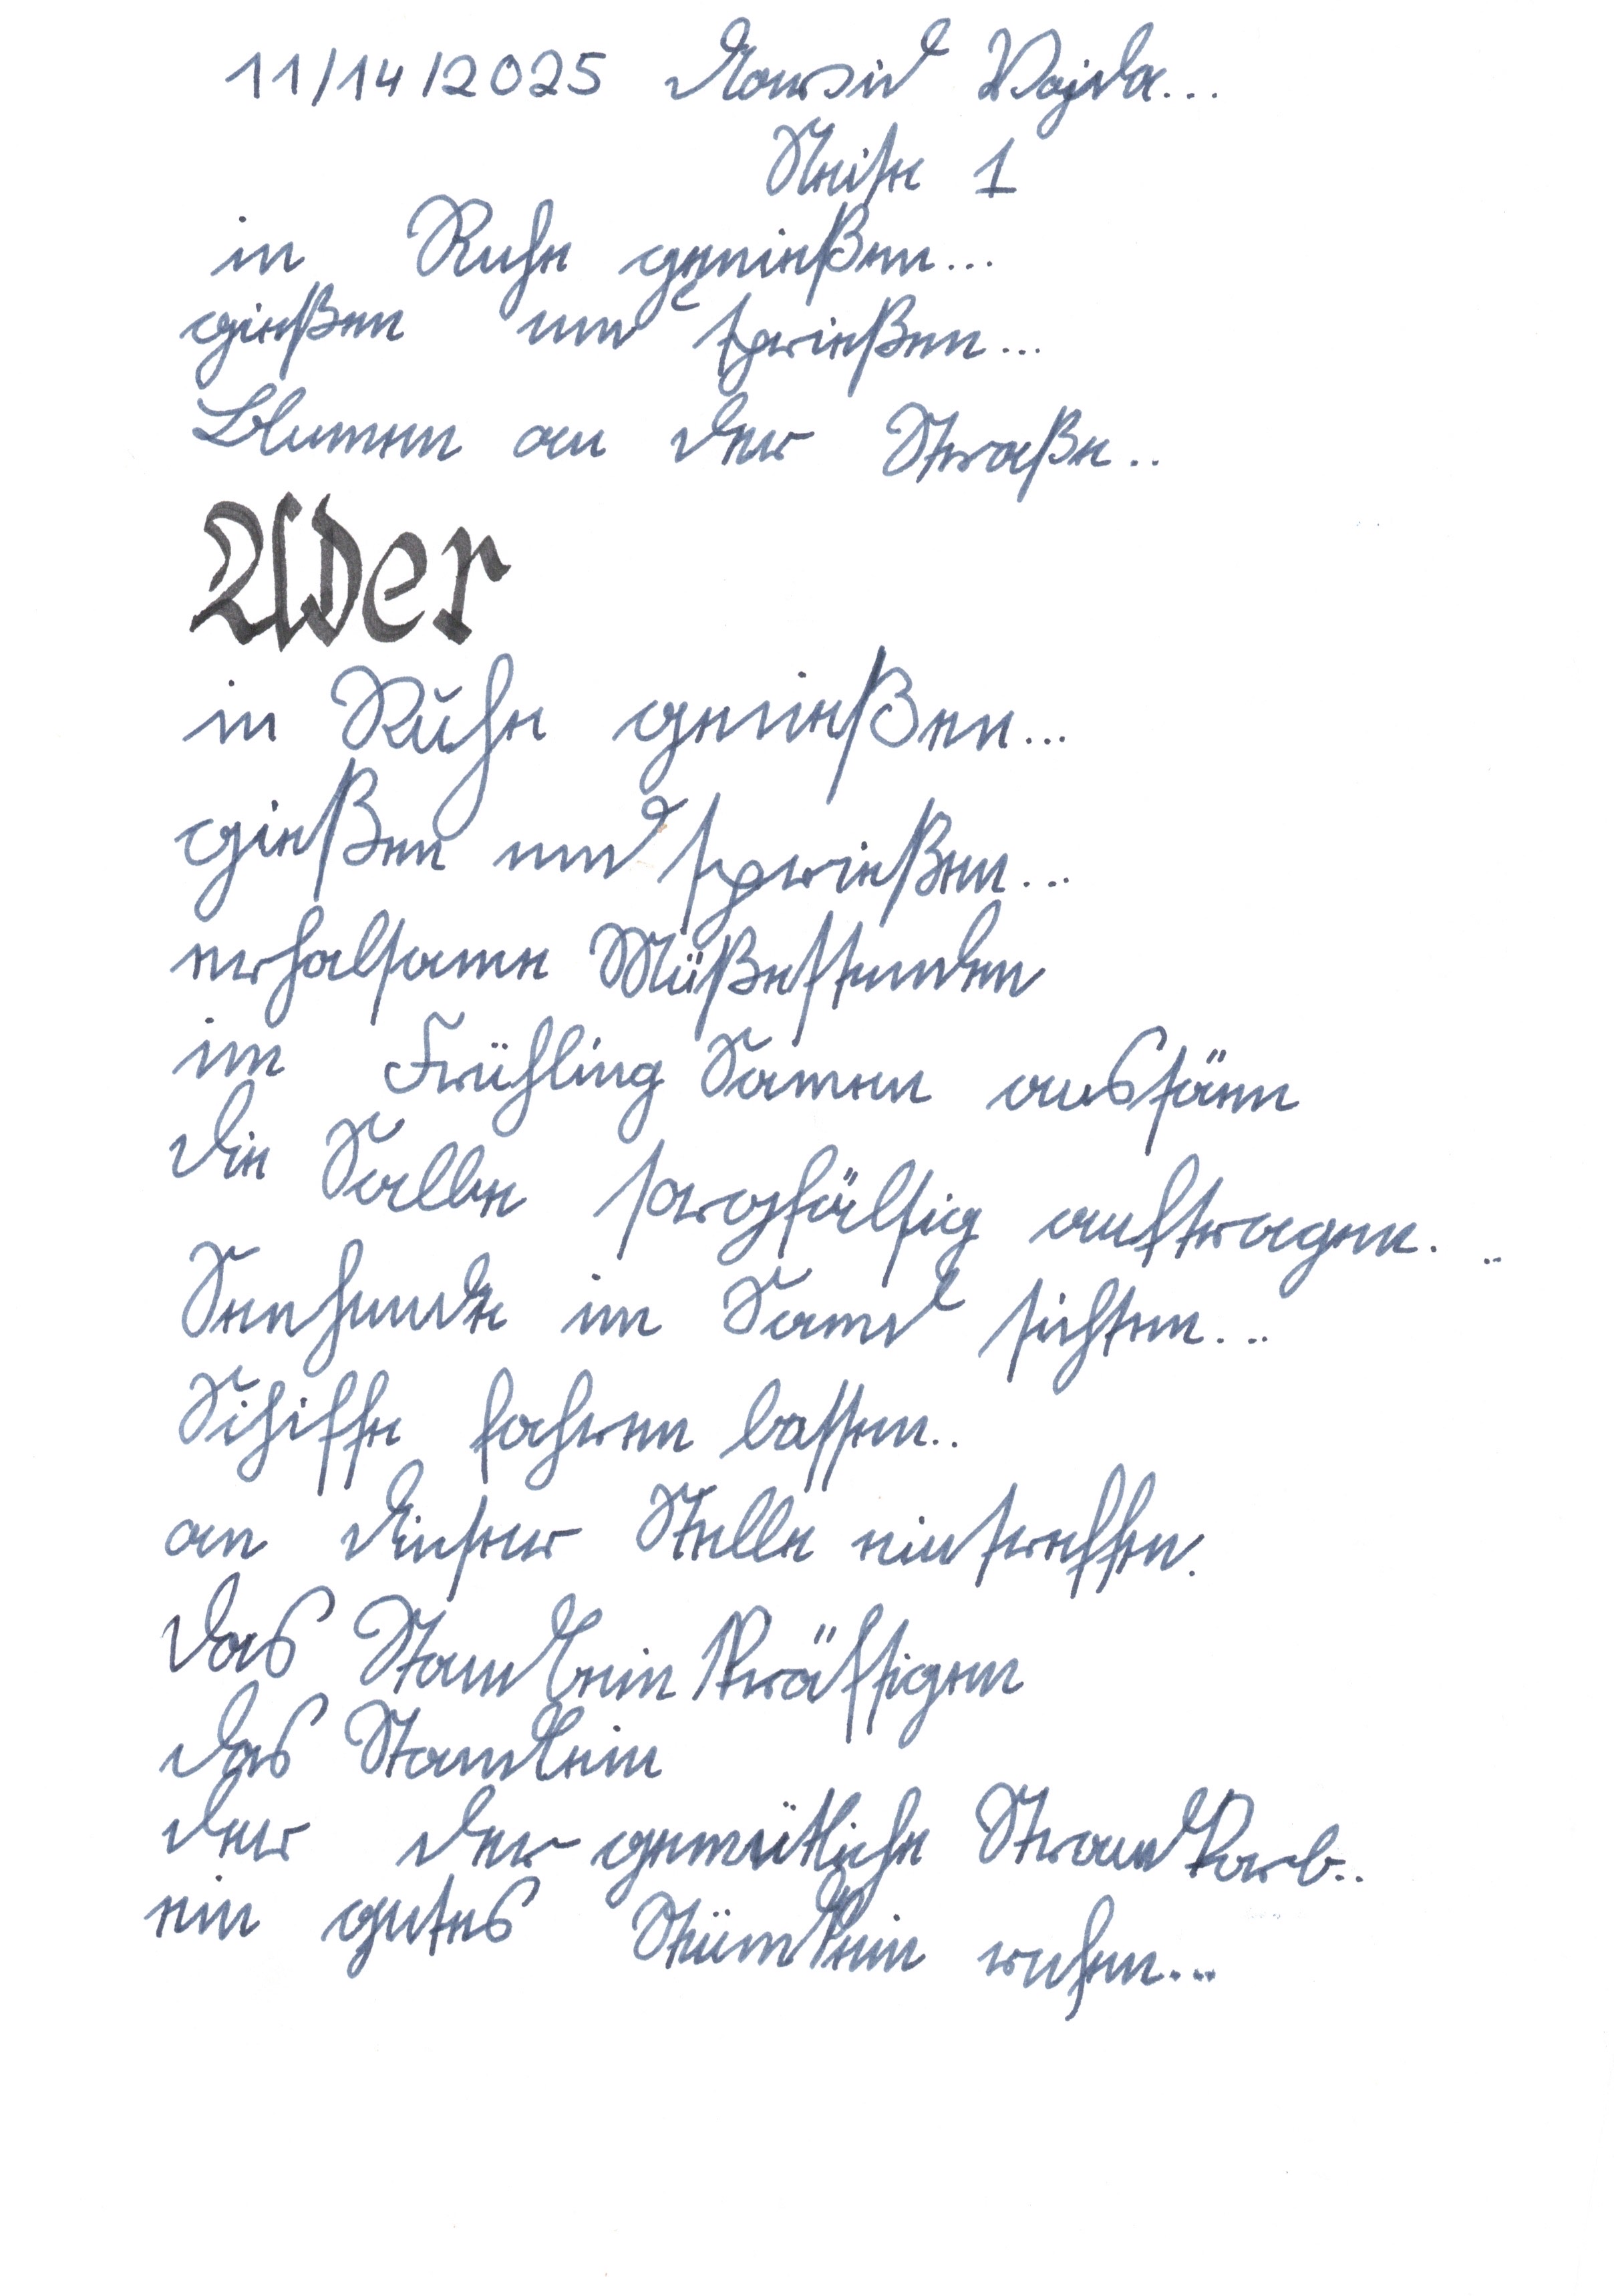 11/14/2025 David Vajda...
Seite 1
in Ruhe genießen...
gießen und sprießen...
Blumen an der Straße..
Ader
in Ruhe genießen...
gießen und sprießen...
erholsame Müßestunden
im Frühling Samen aussäen
die Salbe sorgfältig auftragen...
Seehunde im Sand sichten...
Schiffe fahren lassen..
an dieser Stelle eintreffen.
das Standbein kräftigen
das Standbein
der der gemütliche Strandkorb..
ein gutes Stündlein ruhen...